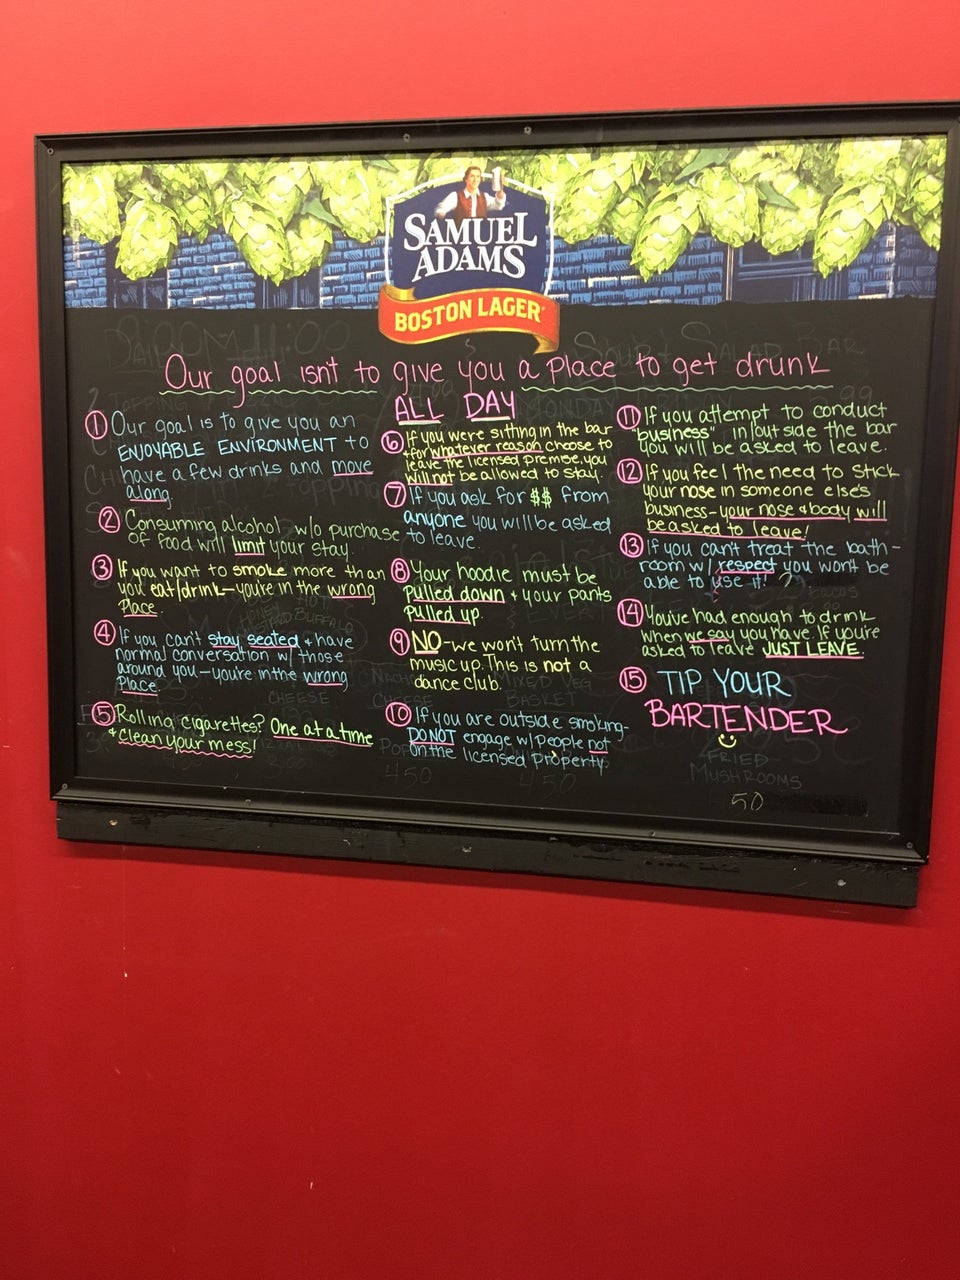 SAMUEL
ADAMS
BOSTON LAGER
Our goal isnt to give you a place to get drunk
ALL DAY
1 Our goal is to give you an
ENJOYABLE ENVIRONMENT to
have a few drinks and move
along.
2 Consuming alcohol w/o purchase
of food will limit your stay.
3 If you want to smoke more than
you eat/drink-you're in the wrong
place.
4 If you can't stay seated & have
normal conversation w/ those
around you-youre in the wrong
Place.
5 Rolling cigarettes? One at a time
& clean your mess!
6 If you were sitting in the bar
& for whatever reason choose to
leave the licensed premise, you
will not be allowed to stay.
7 If you ask for $$ from
anyone you will be asked
to leave.
8 Your hoodie must be
pulled down & your pants
pulled up.
9 NO-we won't turn the
music up. This is not a
dance club.
10 If you are outside smoking-
DO NOT engage w/people not
on the licensed property.
11 If you attempt to conduct
"business" in/outside the bar
you will be asked to leave.
12 If you feel the need to stick
your nose in someone else's
business-your nose & body will
be asked to leave!
13 If you can't treat the bath-
room w/ respect you won't be
able to use it!
14 You've had enough to drink
when we say you have. If you're
asked to leave JUST LEAVE.
15 TIP YOUR
BARTENDER
FRIED
MUSHROOMS
50